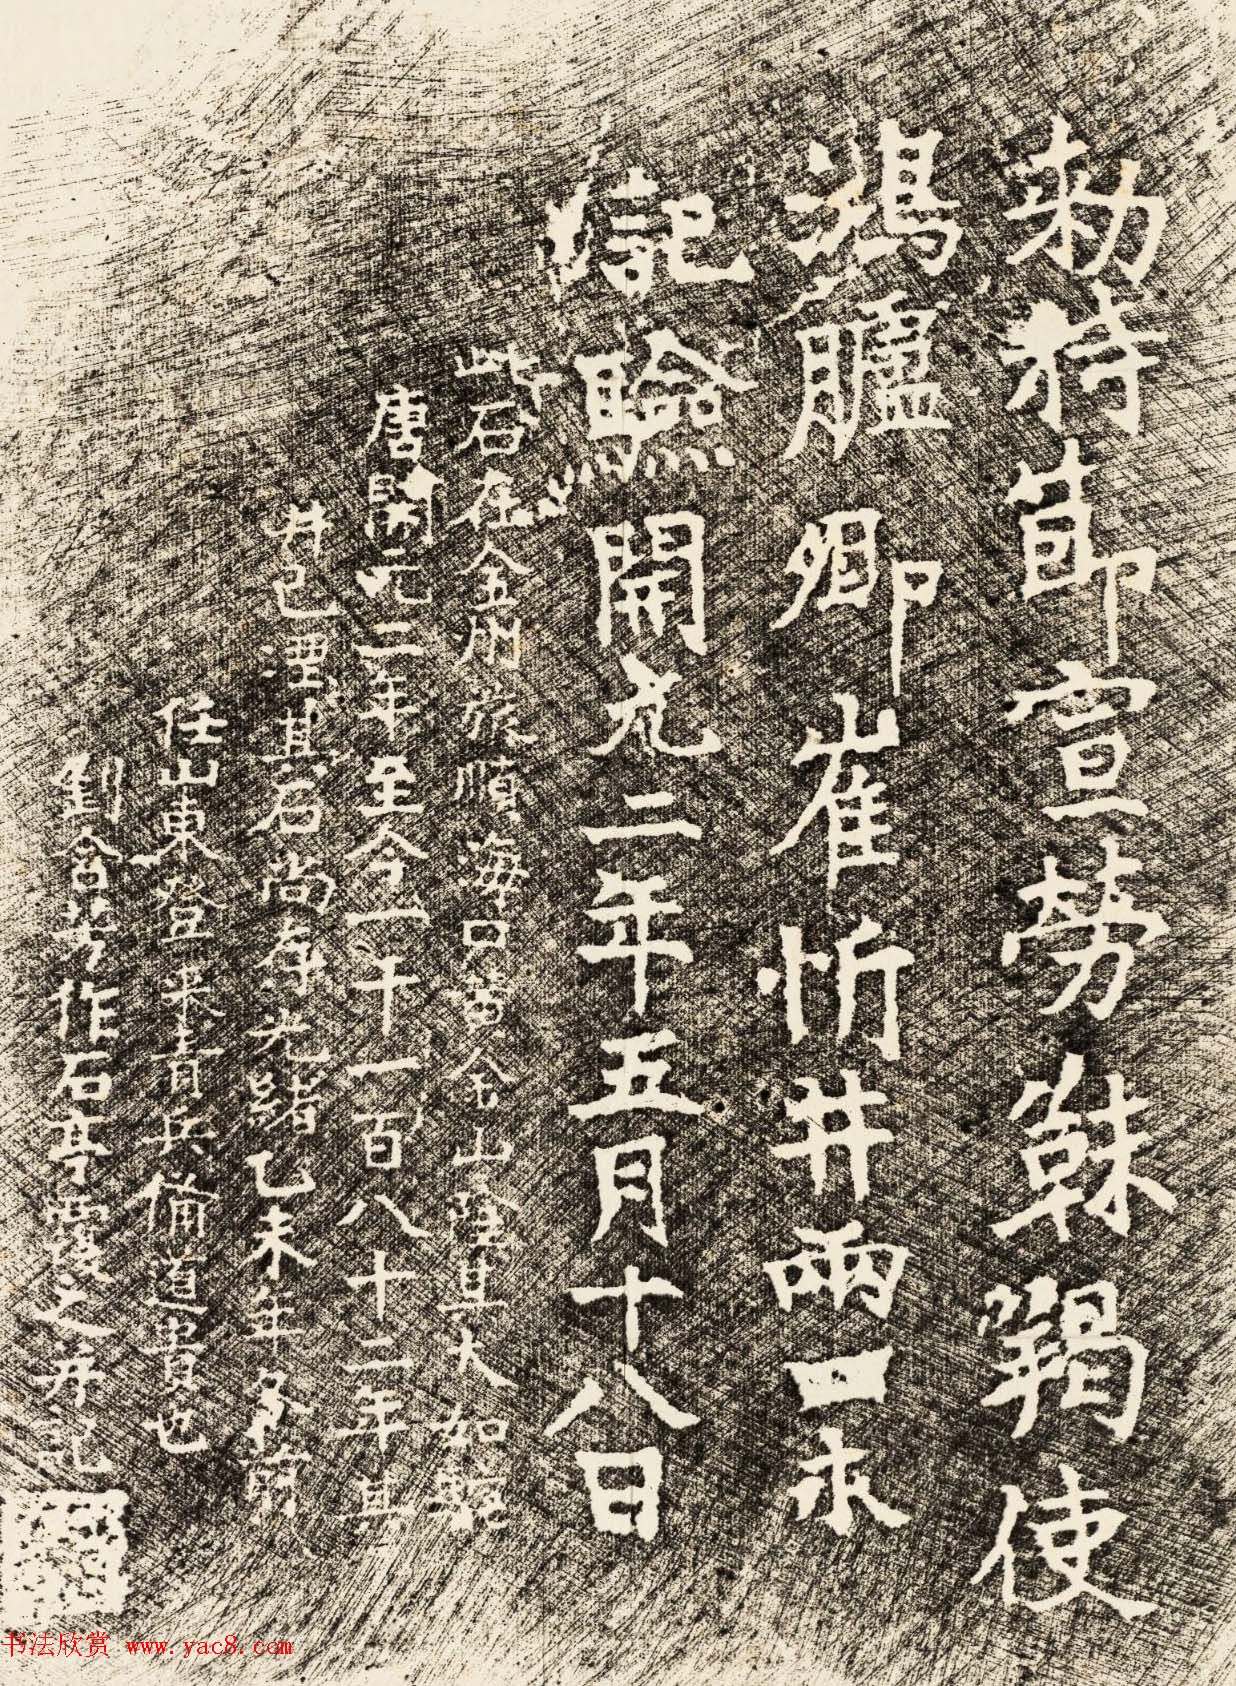 勅持莭宣勞靺羯使
鴻臚卿崔忻井兩口永
為記驗開元二年五月十八日
此石在金州旅順海口黄金山陰其大如駝
唐開元二年至今一千一百八十二年其
井已湮其石尚存光緒乙未年冬前
任山東登萊青兵備道貴池
劉含芳作石亭覆之并記
书法欣赏 www.yac8.com